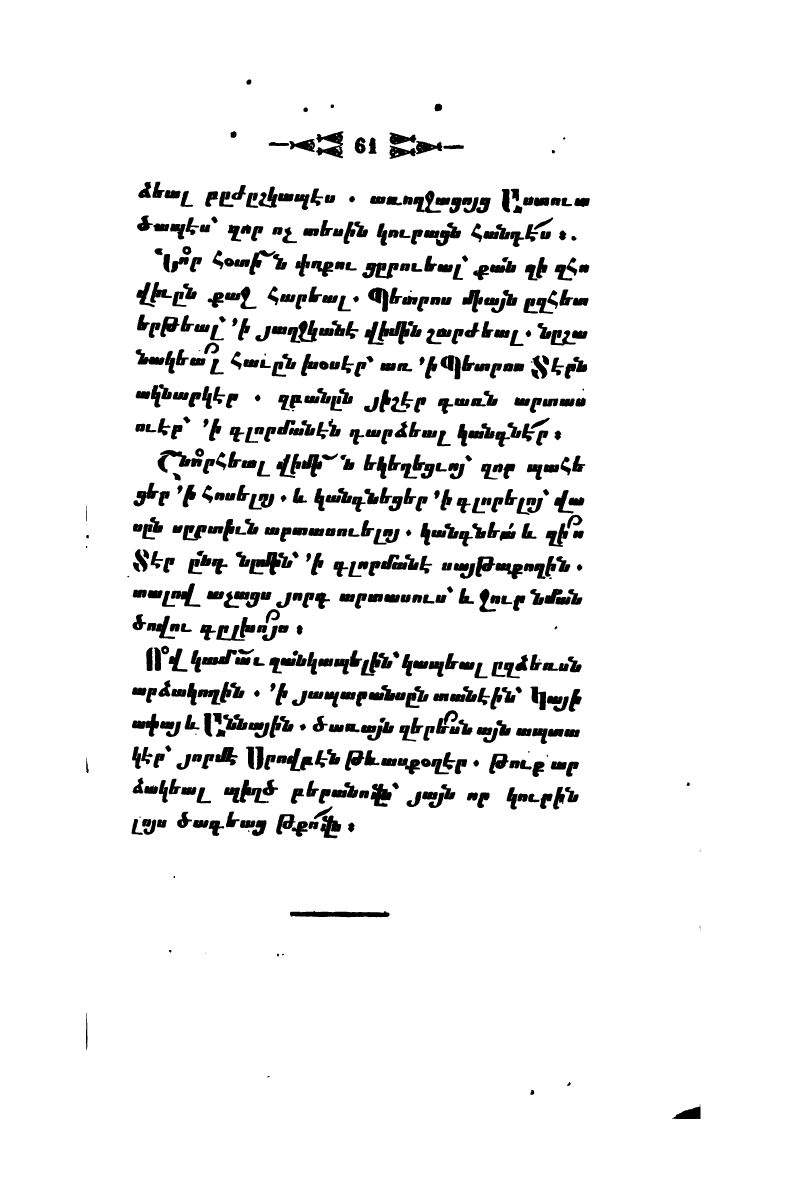 61
ձեալ բըժըշկապէս . առողջացոյց Աստուա
ծապէս՝ զոր ոչ տեսին կուրացն հանդէս ։
Նոր հօտի՜ն փոքու ցըրուեալ՝ քան զի զհո
վիւըն քաջ հարեալ. Պետրոս միայն ըզհետ
երթեալ՝ ՚ի յաղջկանէ վիմին շարժեալ. նըշա
նակեալ հաւըն խօսէր՝ առ ՚ի Պետրոս Տէրն
ակնարկէր . զբանըն յիշէր դառն արտաս
ուէր՝ ՚ի գլորմանէն դարձեալ կանգնէր ։
Շնորհեալ վիմի՜ն եկեղեցւոյ՝ զոր պահե
ցեր ՚ի հոսելոյ . և կանգնեցեր ՚ի գլորելոյ՝ վա
սըն սըրտիւն արտասուելոյ . կանգնեա և զիս
Տէր ընդ նըմին՝ ՚ի գլորմանէ սայթաքողին .
տալով աչացս յորդ արտասուս՝ և ջուր նման
ծովու գըլխոյս ։
Ո՛վ կամաւ զանկապելին՝ կապեալ ըզձեռսն
արձակողին . ՚ի յապարանսըն տանէին՝ Կայի
ափայ և Աննային . ծառայն զերեսն այն ապտա
կէր՝ յորմէ Սրովբէն թևասքօղէր . թուք ար
ձակեալ պիղծ բերանովն՝ յայն որ կուրին
լոյս ծագեաց թքովն ։